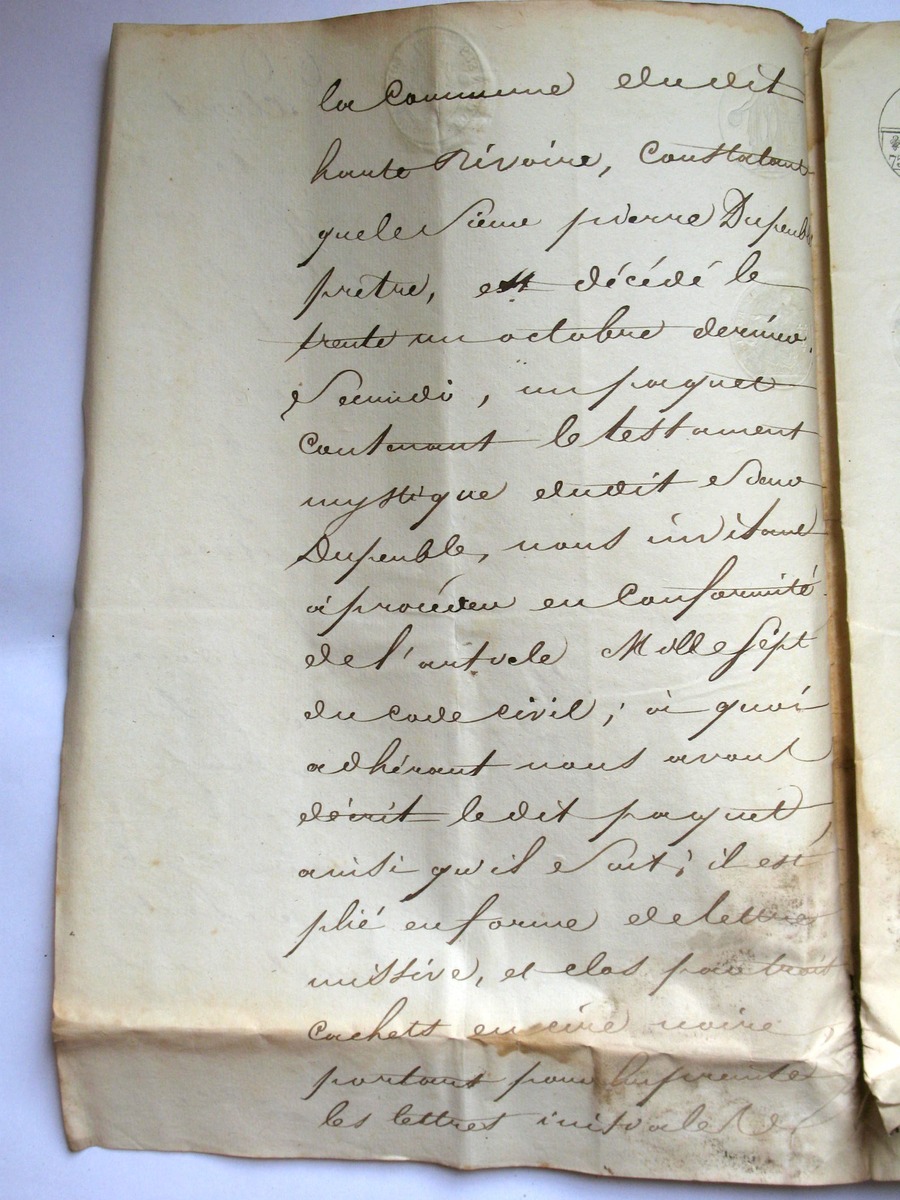 la Commune dudit
haute Rivoire, Constatant
que le Sieur pierre Dupeuble
prêtre, est décédé le
trente un octobre dernier.
Secundò, un paquet
Contenant le testament
mystique dudit Sieur
Dupeuble, nous invitant
à procéder en Conformité
de l'article Mille Sept
du code civil ; à quoi
adhérant nous avons
décrit le dit paquet,
ainsi qu'il Suit ; il est
plié en forme de lettre
missive, et clos par trois
cachets en cire noire
portant pour Empreinte
les lettres initiales D